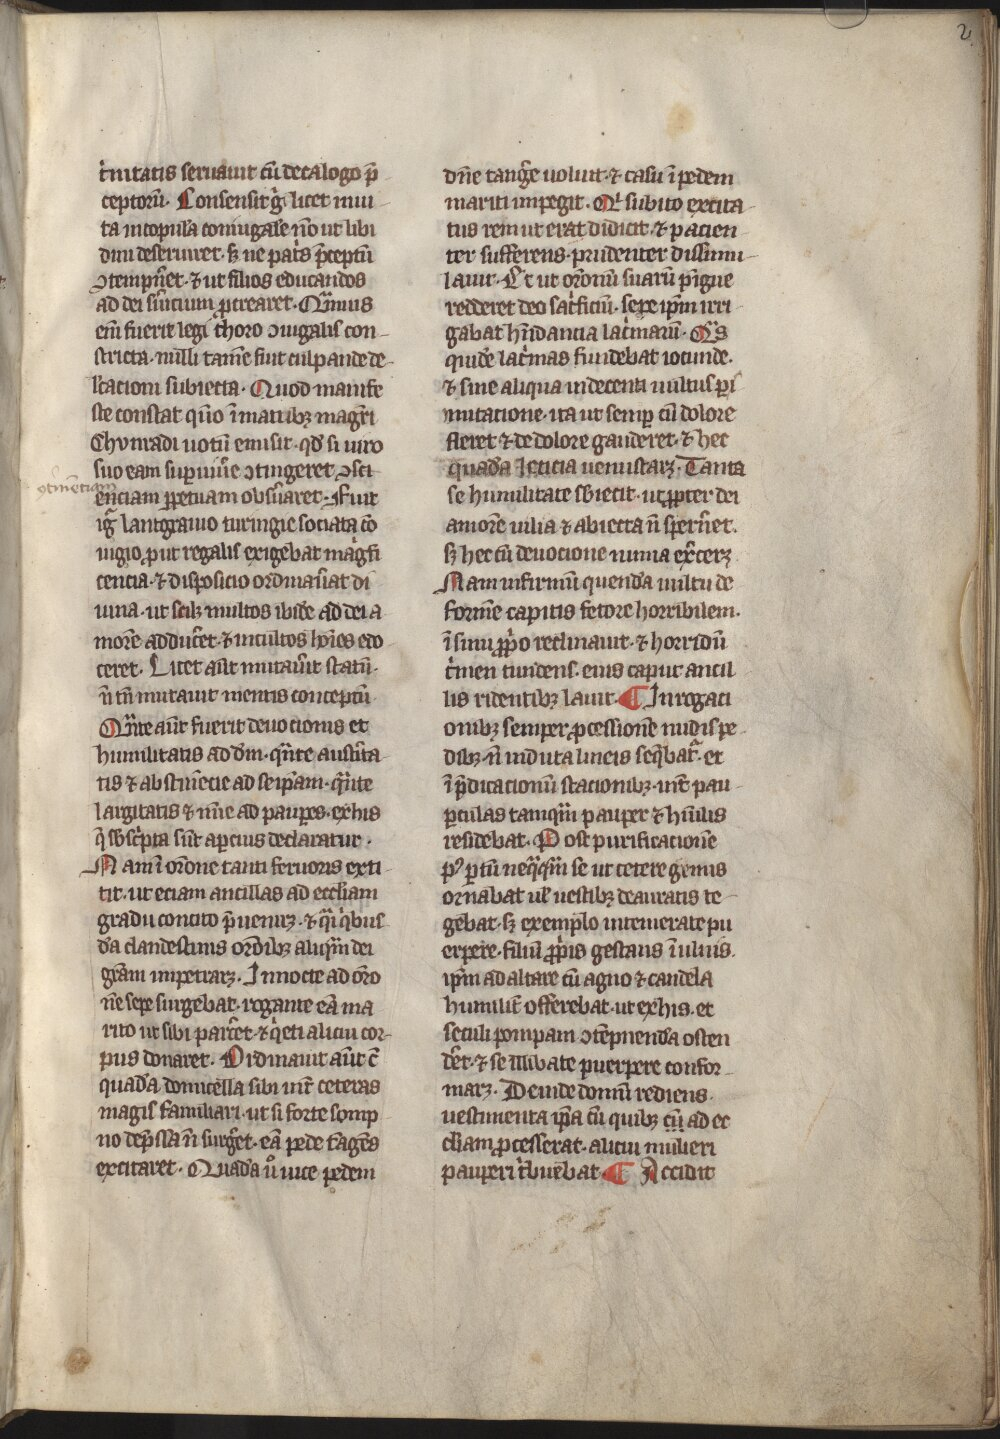 2
t̾nitatis seruauit cū decalogo p̄
ceptorū. Consensit g̾ licet inui
ta in copula coniugale nō ut libi
dini deseruiret. sꝫ ne patͥs p̄ceptū
ↄtempn̄et. ⁊ ut filios educandos
ad dei ẜuicium ꝓcrearet. Qͣmuis
em̄ fuerit legi thoro ↄiugalis con-
stricta. nulli tam̄e fuit culpande de-
lectacioni subiecta. Quod manife
ste constat qm̄o ī manibꝫ magr̄i
Chunradi uotū emisit. qd̓ si uiro
suo eam suꝑuiue̾ ↄtingeret ↄti-
ↄtinētiam
enciam ꝑpetuam obẜuaret. Fuit
ig̾ lantgrauio turingie sociata cō
iugio. ꝓut regalis exigebat mag̾fi
cencia. ⁊ disposicio ordinau̾at di
uina. ut scilꝫ multos ibid̾e ad dei a
morē adduc̾et. ⁊ incultos ho̅i̅es edo
ceret. Licet aūt mutau̾it statū.
n̄ tn̄ mutauit mentis conceptū.
Qͣnte aūt fuerit deuocionis et
humilitatis ad dm̄. qͣnte aust̾ita-
tis ⁊ abstinēcie ad seip̄am. qͣnte
largitatis ⁊ m̄ie ad pauꝑes. ex his
q̄ sb̾sc̾pta sūt aꝑcius declaratur.
Nam ī orōne tanti feruoris exti
tit. ut eciam ancillas ad eccl̄iam
gradu concito p̄uenirꝫ. ⁊ qͣi qͥbus
dā clandestinis or̄oibꝫ aliqͣm dei
grām impetrarꝫ. In nocte ad oro
nē sepe surgebat. rogante eā ma
rito ut sibi parc̾et. ⁊ qͥeti aliciu cor-
pus donaret. Ordinauit aūt cū
quadā domicella sibi int̾ ceteras
magis familiari. ut si forte somp
no dep̄ssa n̄ surg̾et. eā pede tāgēs
excitaret. Quadā u̾o uice pedem
dn̄e tang̾e uoluit. ⁊ casu ī pedem
mariti impegit. Qͥ subito excita-
tus rem ut erat didicit. ⁊ pacien
ter sufferens. prudenter dissimu-
lauit. Et ut orōnū suarū pīgue
redderet deo sac̾ficiū. sepe ip̄m irri-
gabat habūdancia lac̾marū. Qͣs
quidē lac̾mas fundebat iocunde.
⁊ sine aliqua indecenti uultus ꝑi
mutacione. ita ut semꝑ cū dolore
fleret ⁊ de dolore gauderet. ⁊ hec
quadā leticia uenustarꝫ. Tanta
se humilitate sb̾iecit. ut ꝓpter dei
amorē uilia ⁊ abiecta n̄ spern̾et.
sꝫ hec cū deuocione nimia ex̾cerꝫ
Nam infirmū quendā uultu de
forme capitis fetore horribilem.
ī sinu ꝓp̄o reclinauit. ⁊ horridū
c̾men tundens. eius caput ancil
lis ridentibꝫ lauit. ¶ In rogaci
onibꝫ semper ꝓcessionē nudis pe-
dibꝫ. ⁊ induta lineis seq̄batͬ. et
ī p̄dicacionū stacionibꝫ. int̾ pau-
ꝑculas tamqͣm pauꝑ ⁊ hūilis
residebat. Post purificacionē
pꝰ ꝑtū neqͣqͣm se ut cetere gēmis
ornabat uel uestibꝫ deauratis te-
gebat. sꝫ exemplo intemerate pu
erpere. filiū ꝓp̄is gestans ī ulnis.
ip̄m ad altare cū agno ⁊ candela
humilit̾ offerebat. ut ex his. et
seculi pompam ↄtēpnendā osten
d̾et. ⁊ se illibate puerpere confor-
marꝫ. Deinde domū rediens.
uestimenta ip̄a cū quibꝫ cū ad ec
cl̄iam ꝓcesserat. aliciu mulieri
pauꝑi t̾buebat. ¶ Accidit